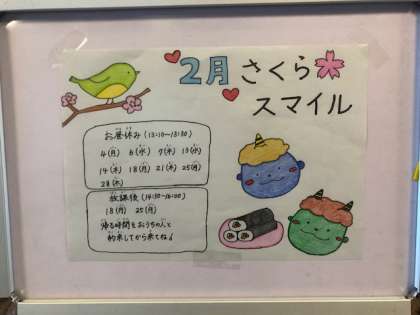 2月 さくら
スマイル
お昼休み (13:10~13:30)
4(月) 6(水) 7(木) 13(水)
14(木) 18(月) 21(木) 25(月)
28(木)
放課後 (14:30~16:00)
18(月) 25(月)
帰る時間をおうちの人と
約束してから来てね♪